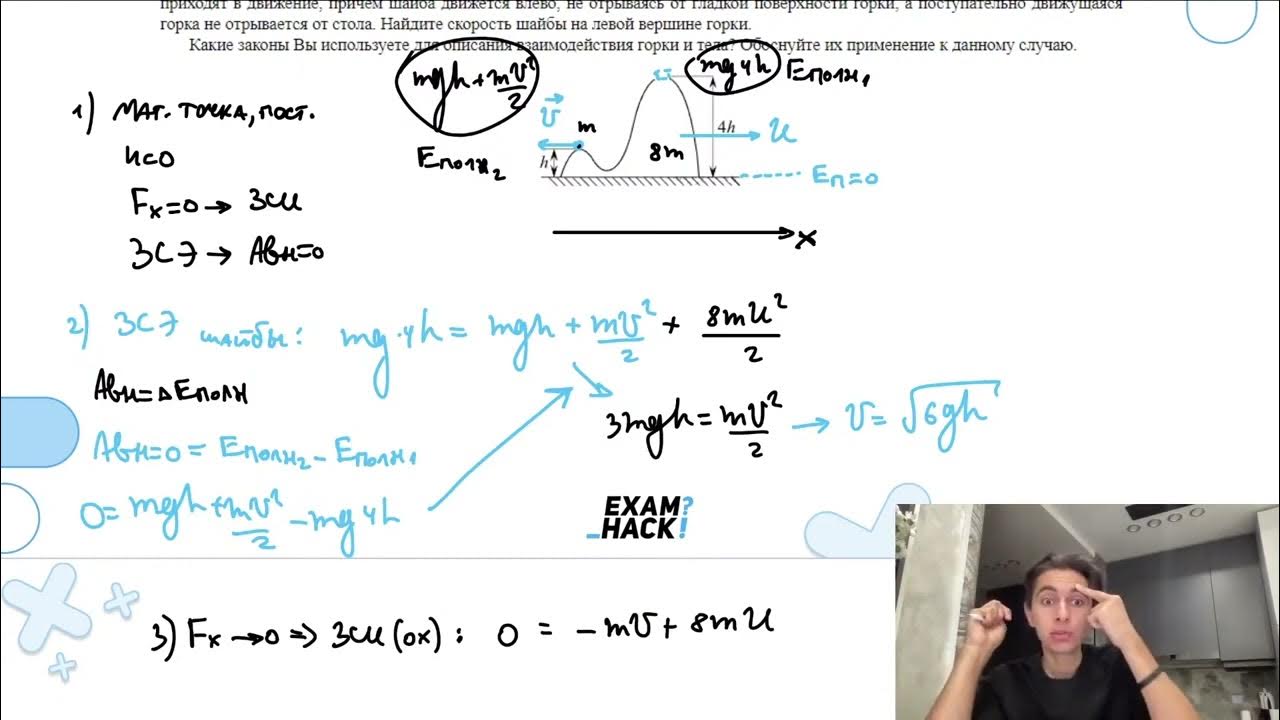 приходят в движение, причём шайба движется влево, не отрываясь от гладкой поверхности горки, а поступательно движущаяся
горка не отрывается от стола. Найдите скорость шайбы на левой вершине горки.
Какие законы Вы используете для описания взаимодействия горки и тела? Обоснуйте их применение к данному случаю.
mgh + mv²/2
mg4h Eполн₁
1) мат. точка, пост.
v
m
4h
u
Eполн₂
h
8m
Eп=0
и=0
Fx=0 → ЗСИ
x
ЗСЭ → Aвн=0
2) ЗСЭ шайбы: mg·4h = mgh + mv²/2 + 8mu²/2
Aвн = ΔEполн
3mgh = mv²/2 → v = √6gh
Aвн=0 = Eполн₂ – Eполн₁
0 = mgh + mv²/2 – mg4h
EXAM?
_HACK!
3) Fx → 0 => ЗСИ (ox): 0 = –mv + 8mu